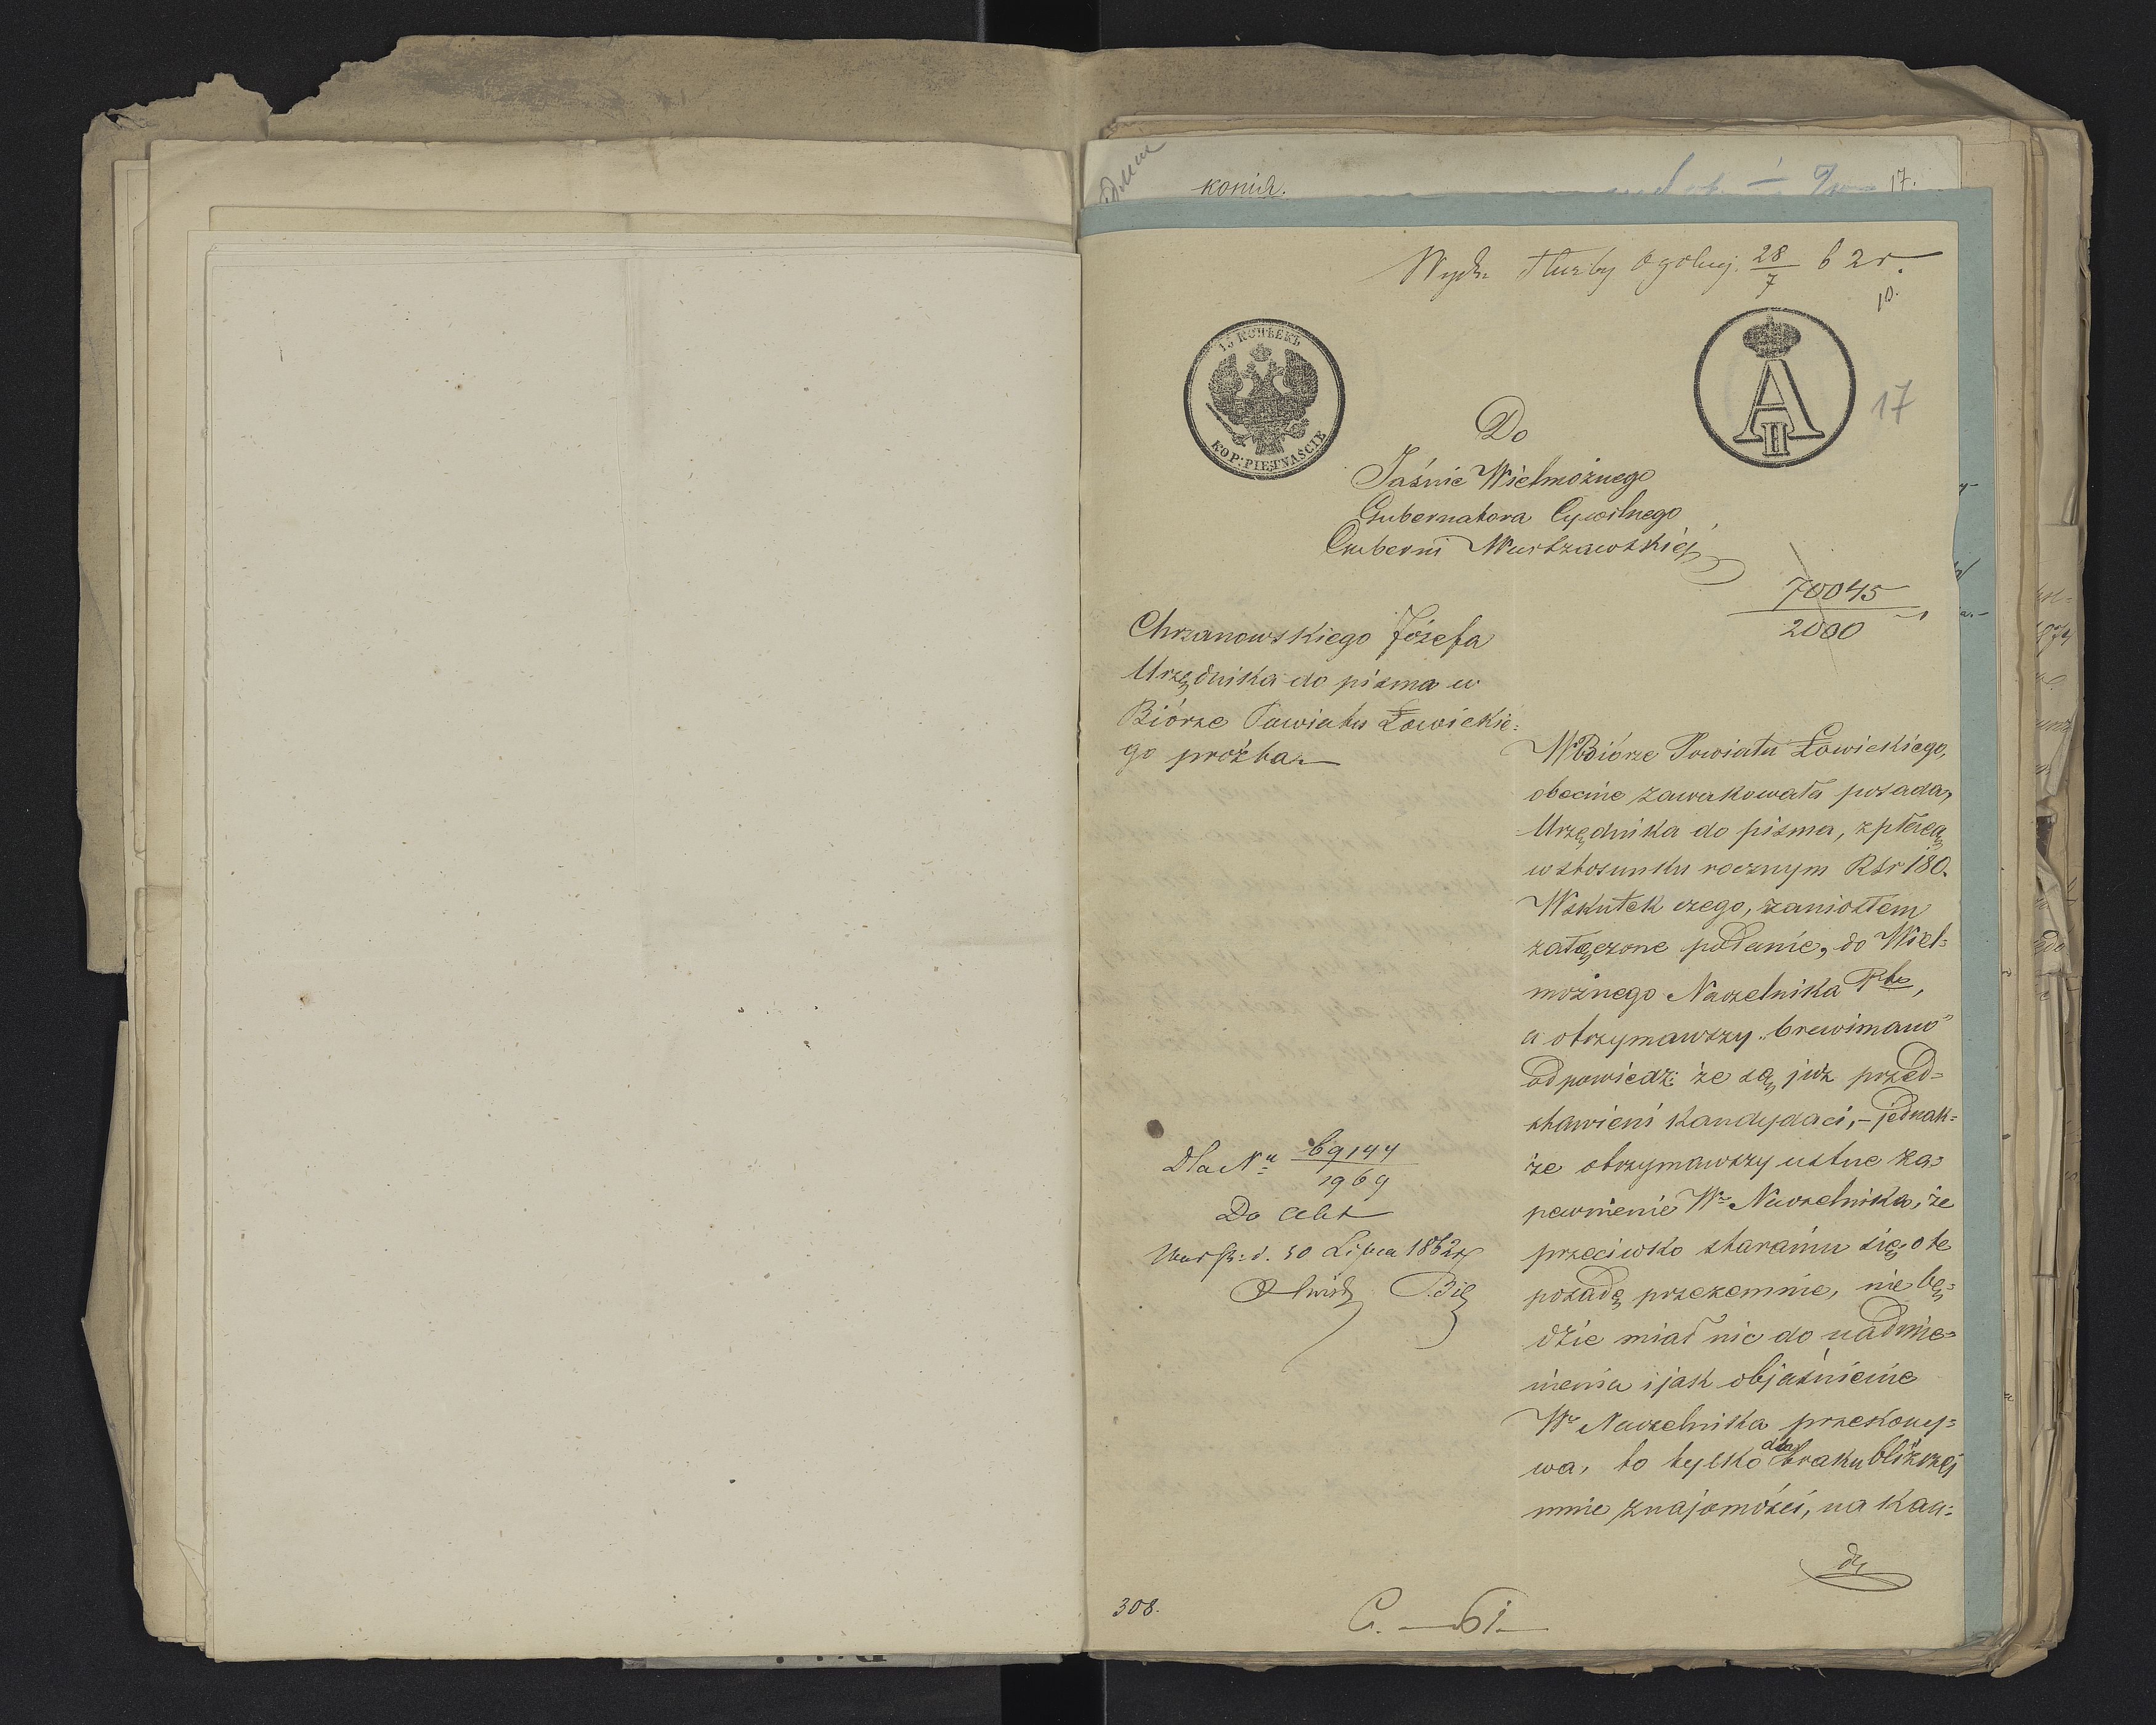 копія.
17.
Wydz. Służby Ogólnej 28/7 62 r.
10.
15 КОПѢЕКЪ
KOP: PIĘTNAŚCIE
A II
17
Do
Jaśnie Wielmożnego
Gubernatora Cywilnego
Guberni Warszawskiej
70045
2000
Chrzanowskiego Józefa
Urzędnika do pisma w
Biórze Powiatu Łowickie=
go prośba.
W Biórze Powiatu Łowickiego,
obecnie zawakowała posada,
Urzędnika do pisma, z płacą
w stosunku rocznym RSr 180.
Wskutek czego, zaniosłem
załączone podanie, do Wiel=
możnego Naczelnika Ptu,
a otrzymawszy "brewimanu"
odpowiedź: że są już przed=
stawieni kandydaci,- jednak=
że otrzymawszy ustne za=
pewnienie Wo Naczelnika, że
przeciwko staraniu się o tę
posadę przezemnie, nie bę=
dzie miał nic do nadmie=
nienia i jak objaśnienie
Wo Naczelnika przekony=
wa, to tylko dla braku bliższej
mnie znajomości, na kan=
dy
Dla No 69144
1969
Do akt
Warsz: d. 30 Lipca 1862 r
308.